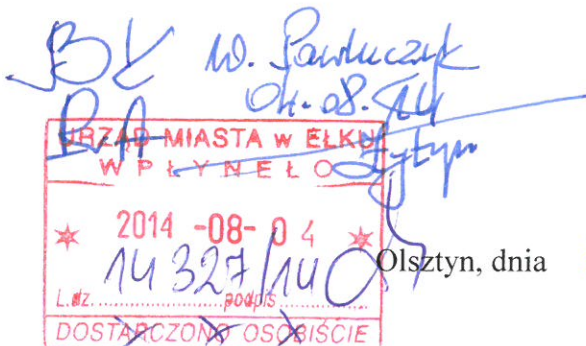 W. Pawluczyk
04.08.14
URZĄD MIASTA w EŁKU
WPŁYNĘŁO
2014 -08- 04
14327/14
L.dz. podpis
DOSTARCZONO OSOBIŚCIE
Olsztyn, dnia